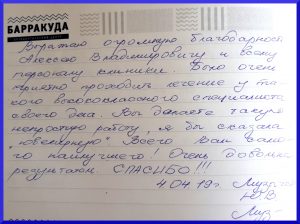 БАРРАКУДА
Выражаю огромную благодарность
Алексею Владимировичу и всему
персоналу клиники. Было очень
приятно проходить лечение у та
кого высококлассного специалиста
своего дела. Вы делаете такую
непростую работу, я бы сказала
"ювелирную" Всего вам само
го наилучшего! Очень довольна
результатом. СПАСИБО!!!
4 04 19г
Ю.В